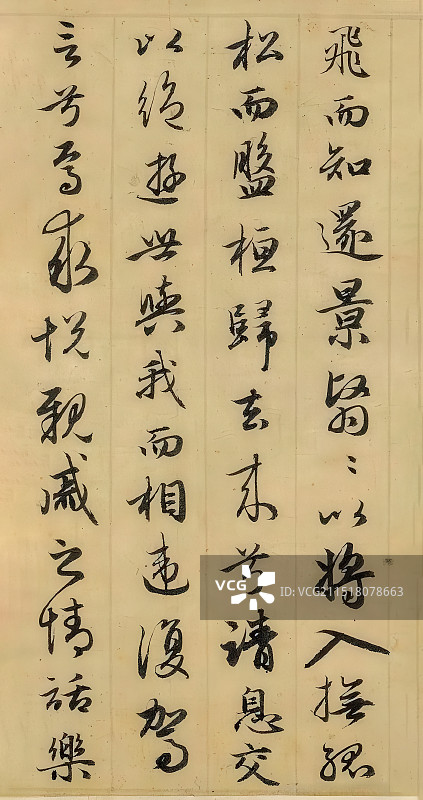 飛而知還景翳〻以將入撫孤
松而盤桓歸去来兮請息交
以絕遊世與我而相違復駕
言兮焉求悅親戚之情話樂
VCG
VCG
ID:VCG211518078663